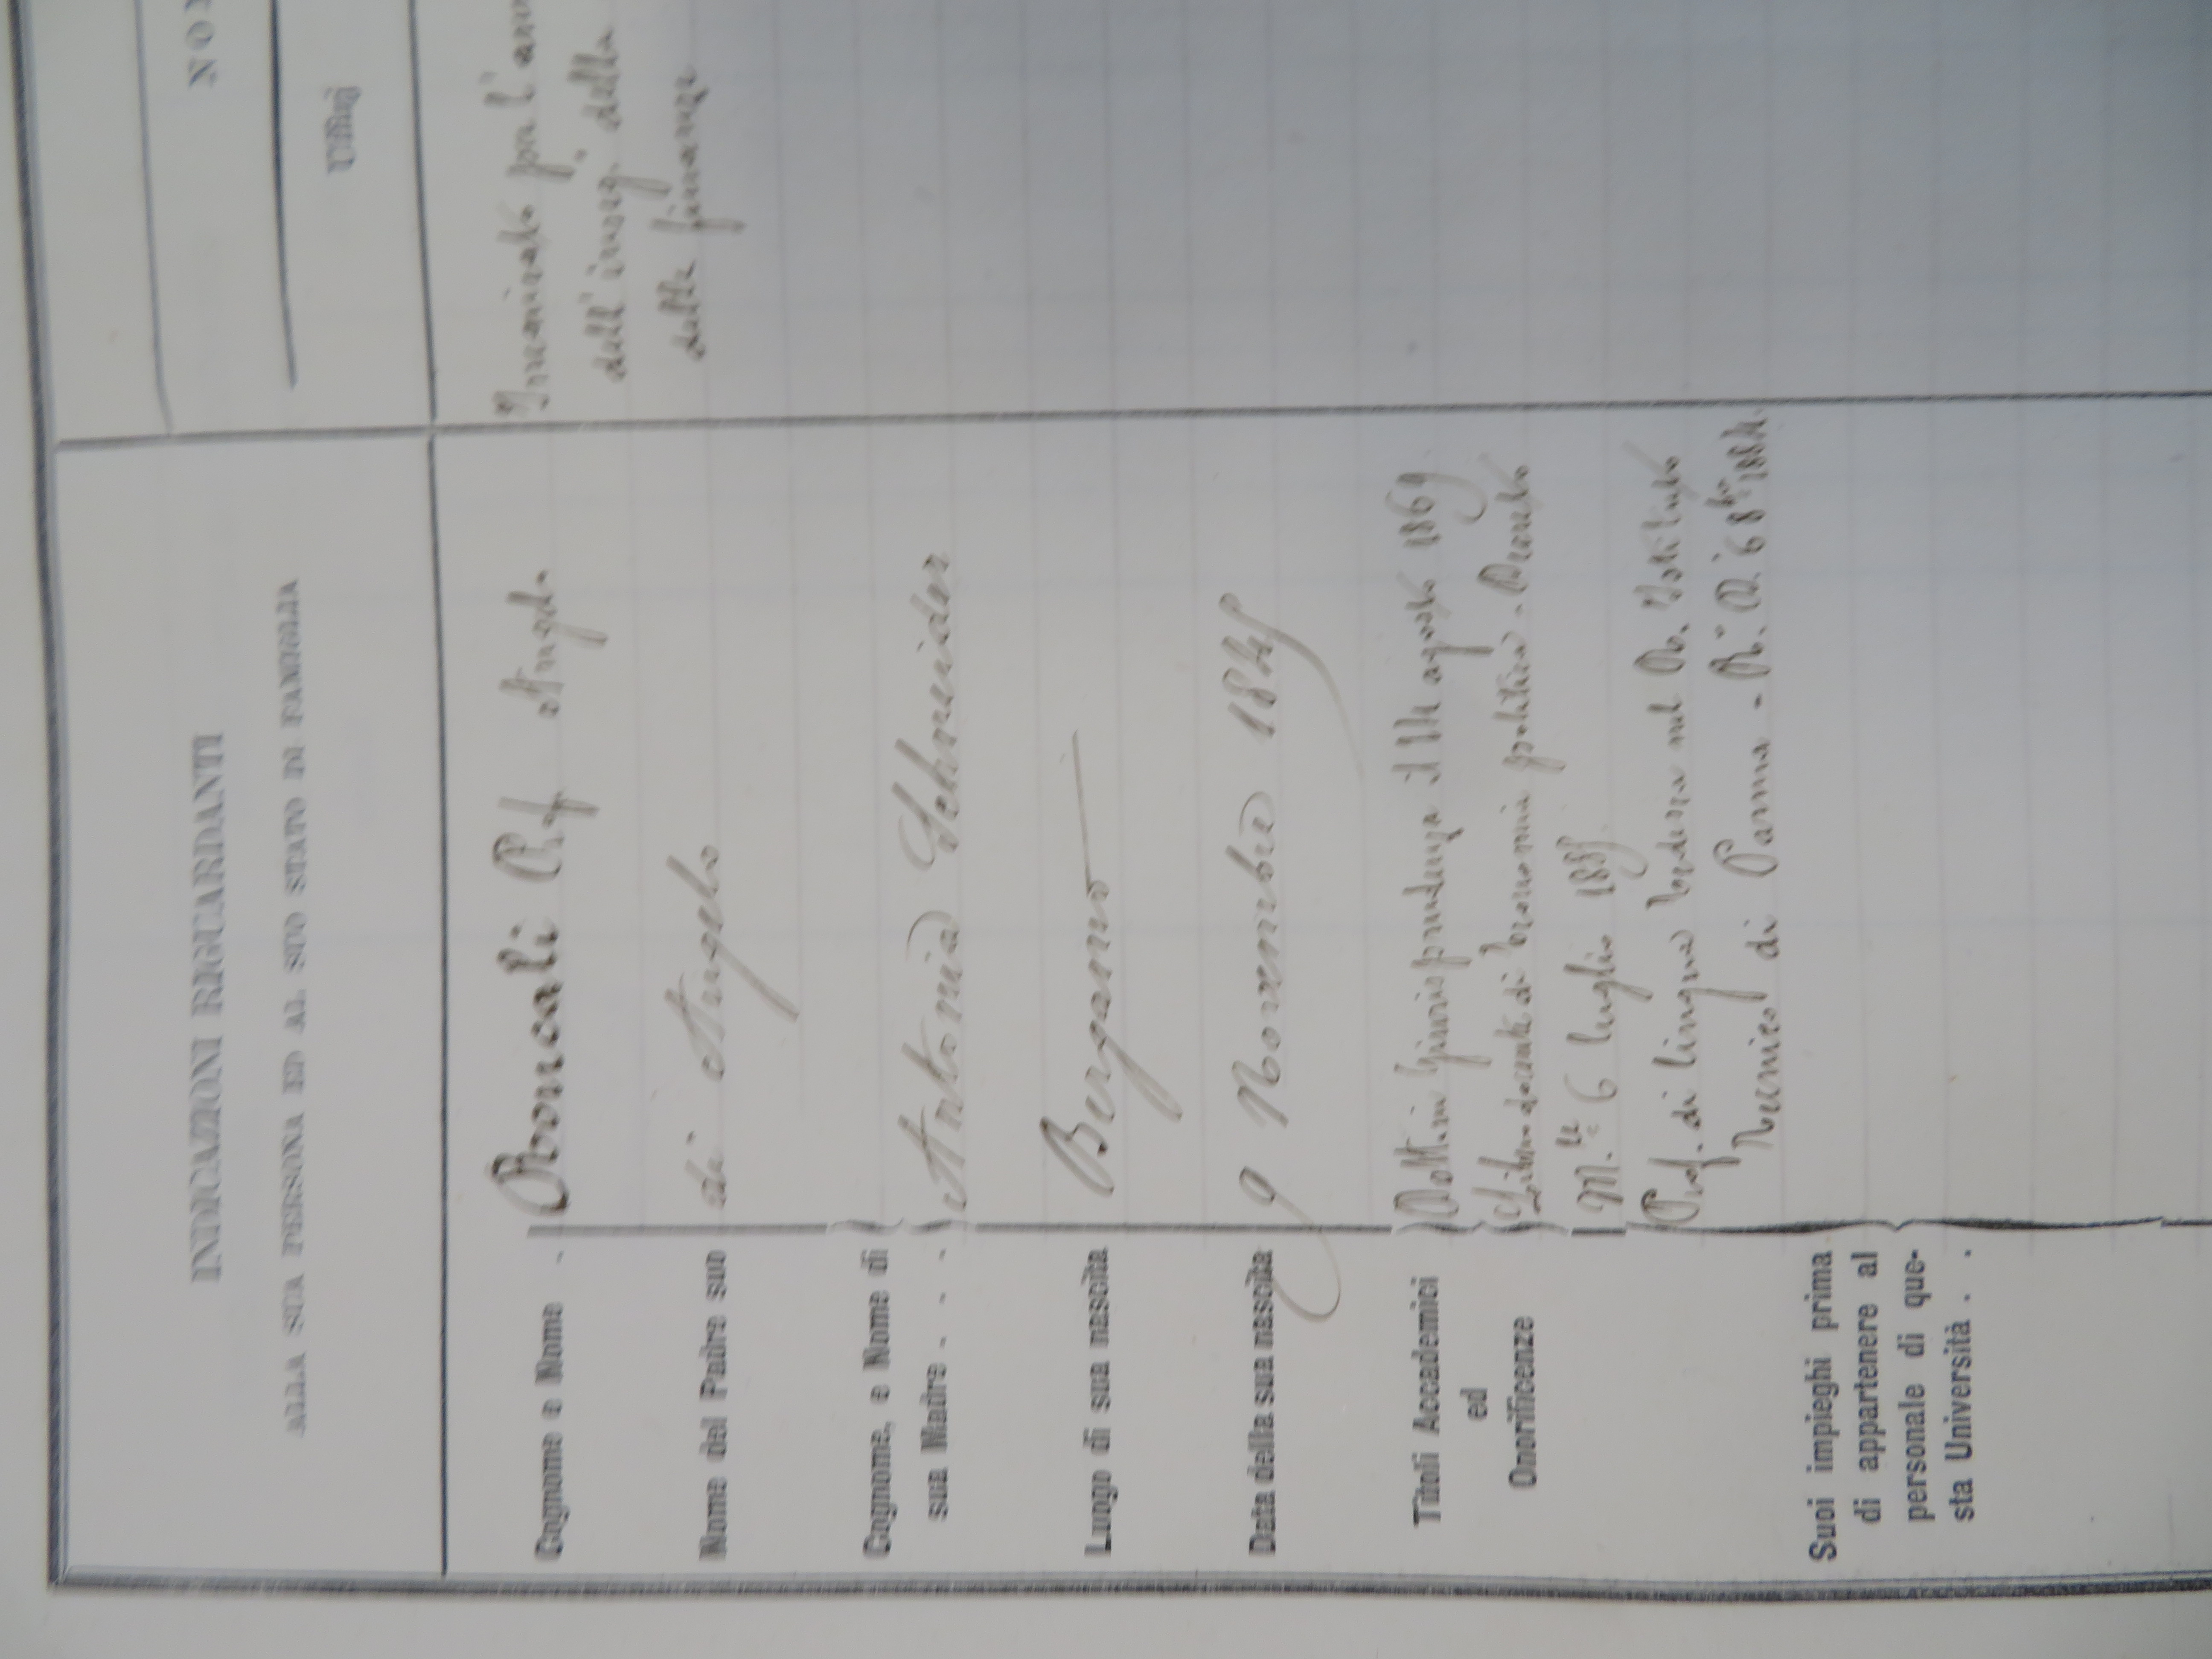 INDICAZIONI RIGUARDANTI
ALLA SUA PERSONA ED AL SUO STATO DI FAMIGLIA
Cognome e Nome . Roncali Prof Angelo
Nome del Padre suo di Angelo
Cognome, e Nome di
sua Madre . . . Antonia Schneider
Luogo di sua nascita Bergamo
Data della sua nascita 9 Novembre 1845
Titoli Accademici
ed
Onorificenze
Dott. in Giurisprudenza il 14 agosto 1869
Libero docente di Economia politica - Decreto
M.le 6 luglio 1885
Suoi impieghi prima
di appartenere al
personale di que-
sta Università . .
Prof. di lingua tedesca nel R. Istituto
Tecnico di Parma - R. D. 6 8bre 1884.
NO
Uffici
Incaricato per l'ann
dell' inseg. della
delle finanze